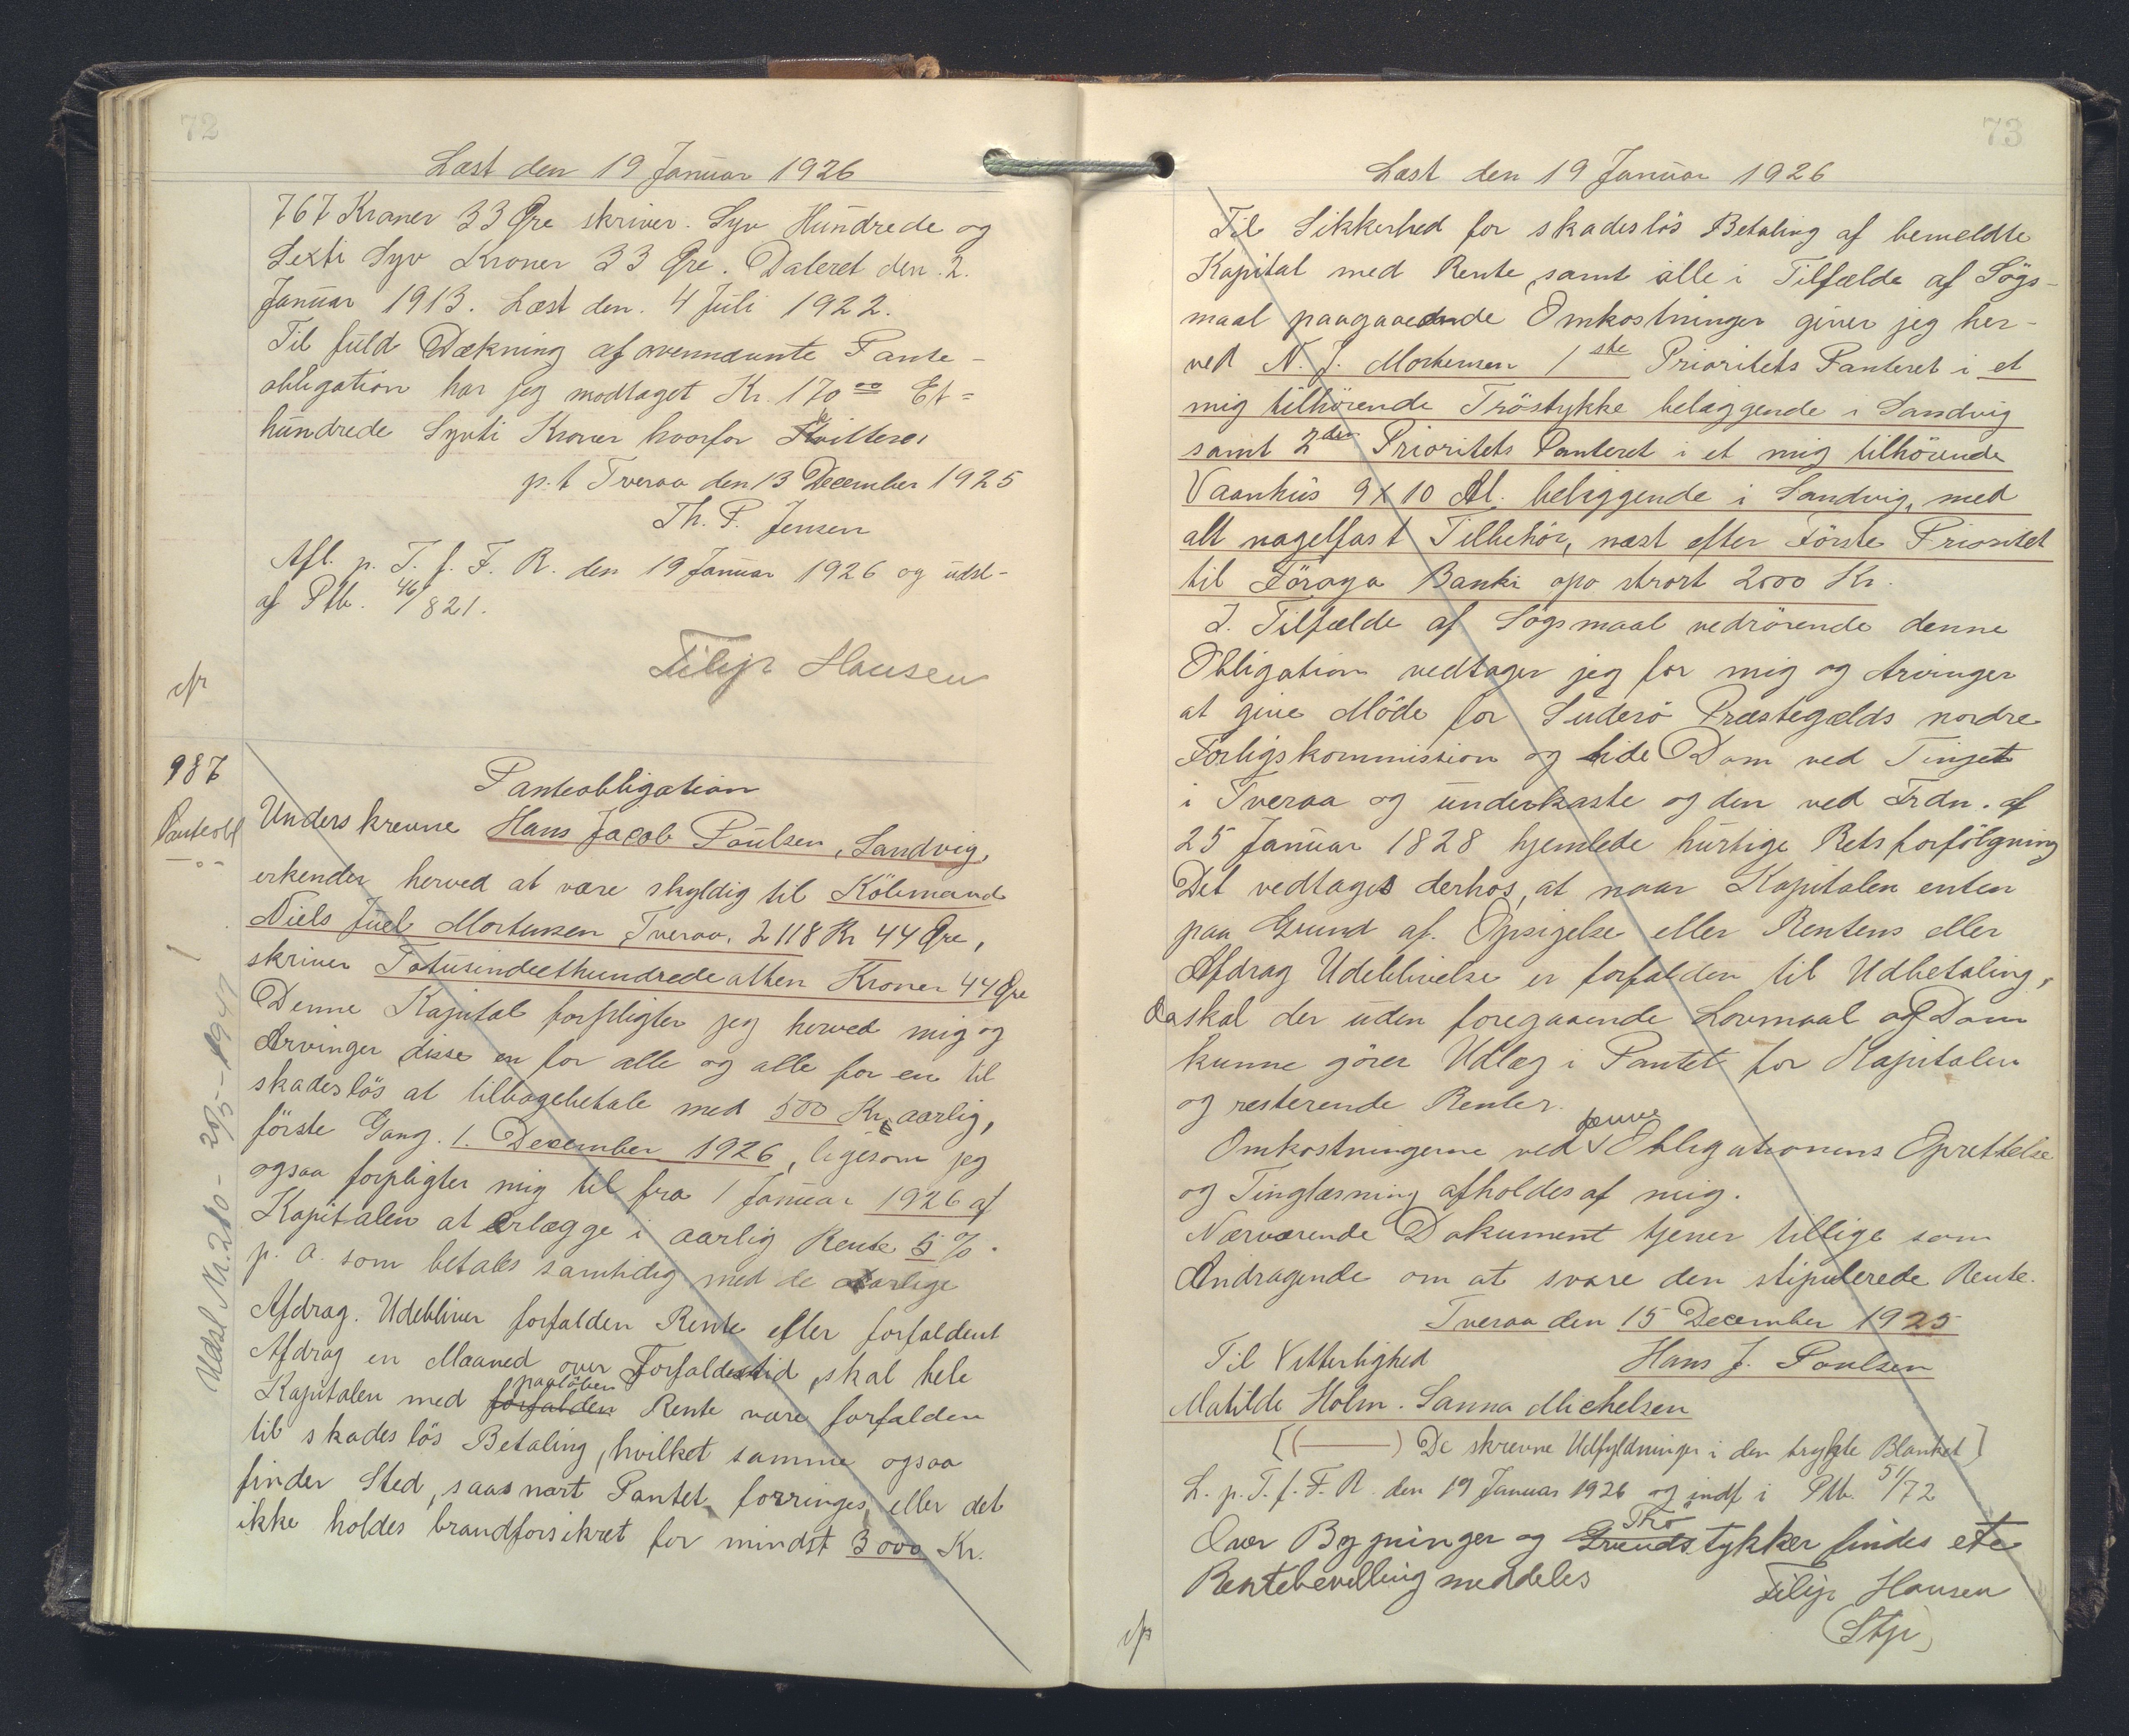 72
Læst den 19 Januar 1926
767 Kroner 33 Øre skriver. Syv Hundrede og
Sexti Syv Kroner 33 Øre. Dateret den 2.
Januar 1913. Læst den. 4 Juli 1922.
Til fuld Dækning af ovennævnte Pante-
obligation har jeg modtaget Kr. 170 00 Et=
hundrede Syvti Kroner hvorfor Kvitteres
p.t Tveraa den 13 December 1925
Th. P. Jensen
Afl. p. T. f. F. R. den 19 Januar 1926 og udsl-
af Ptb. 46/821.
Filip Hansen
987
Panteobl
Udsl Nr. 280 - 20/5-1947
Panteobligation
Underskrevne Hans Jacob Poulsen, Sandvig,
erkender herved at være skyldig til Købmand
Niels Juel Mortensen Tveraa, 2118 Kr 44 Øre,
skriver Totusindeethundredeatten Kroner 44 Øre
Denne Kapital forpligter jeg herved mig og
Arvinger disse en for alle og alle for en til
skadesløs at tilbagebetale med 500 Kr. aarlig,
første Gang. 1. December 1926, ligesom jeg
ogsaa forpligter mig til fra 1 Januar 1926 af
Kapitalen at erlægge i aarlig Rente 5 %.
p. a. som betales samtidig med de aarlige
Afdrag. Udebliver forfalden Rente eller forfaldent
Afdrag en Maaned over Forfaldestid, skal hele
Kapitalen med forfalden paaløben Rente være forfalden
til skadesløs Betaling, hvilket samme ogsaa
finder Sted, saasnart Pantet forringes, eller det
ikke holdes brandforsikret for mindst 3000 Kr.
73
Læst den 19 Januar 1926
Til Sikkerhed for skadesløs Betaling af bemeldte
Kapital med Rente, samt alle i Tilfælde af Søgs-
maal paagaaende Omkostninger giver jeg her-
ved N. J. Mortensen 1ste Prioritets Panteret i et
mig tilhørende Trøstykke belæggende i Sandvig
samt 2den Prioritets Panteret i et mig tilhørende
Vaanhus 9 x 10 Al. beliggende i Sandvig, med
alt nagelfast Tilbehør, næst efter Første Prioritet
til Føroya Banki opo strort 2000 Kr.
I. Tilfælde af Søgsmaal vedrørende denne
Obligation vedtager jeg for mig og Arvinger
at give Møde for Suderø Præstegælds nordre
Forligskommission og lide Dom ved Tinget
i Tveraa og underkaste og den ved Frdn. af
25 Januar 1828 hjemlede hurtige Retsforfølgning
Det vedtages derhos, at naar Kapitalen enten
paa Grund af. Opsigelse eller Rentens eller
Afdrag Udeblivelse er forfalden til Udbetaling,
da skal der uden foregaaende Lovmaal og Dom
kunne gøres Udlæg i Pantet for Kapitalen
og resterende Renter.
Omkostningerne ved denne Obligationens Oprettelse
og Tinglæsning afholdes af mig.
Nærværende Dokument tjener tillige som
Andragende om at svare den stipulerede Rente.
Tveraa den 15 December 1925
Til Vitterlighed Hans J. Poulsen
Matilde Holm. Sanna Michelsen
[(———) De skrevne Udfyldninger i den trykte Blanket]
L. p. T. f. F. R. den 19 Januar 1926 og indf i Ptb. 51/72
Over Bygninger og Grunds Thostykker findes ete
Rentebevilling meddeles Filip Hansen